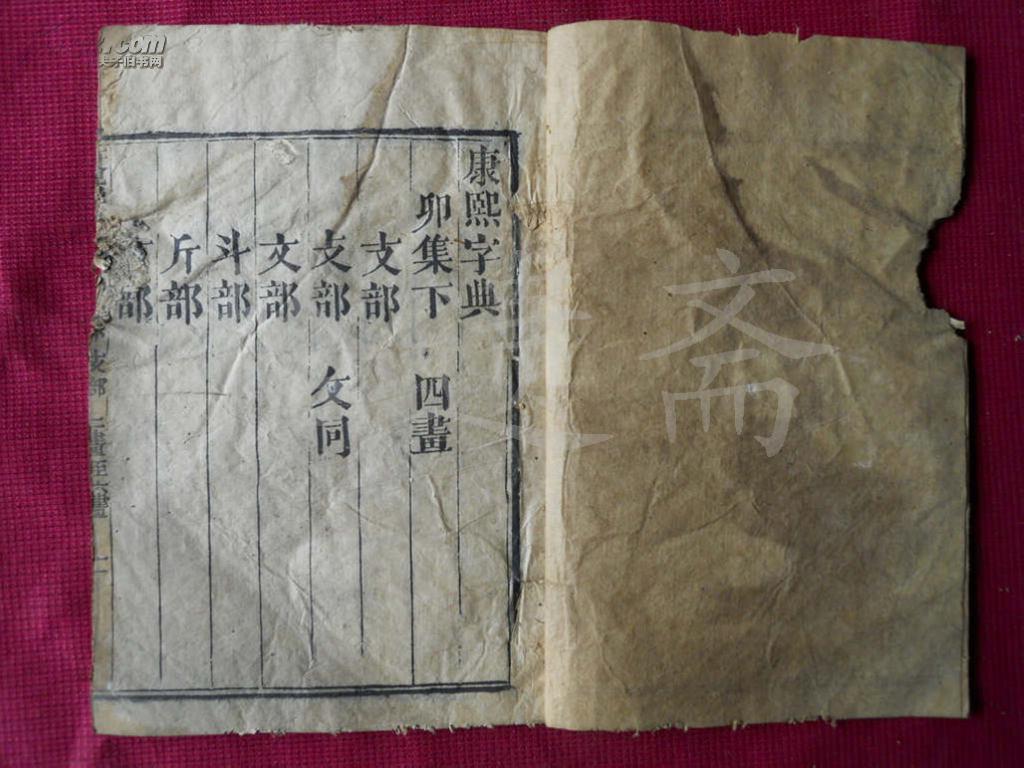 康熙字典
卯集下 四畫
支部
攴部 攵同
文部
斗部
斤部
部
攴部 二畫至六畫 一
文斋
.com
夫子旧书网